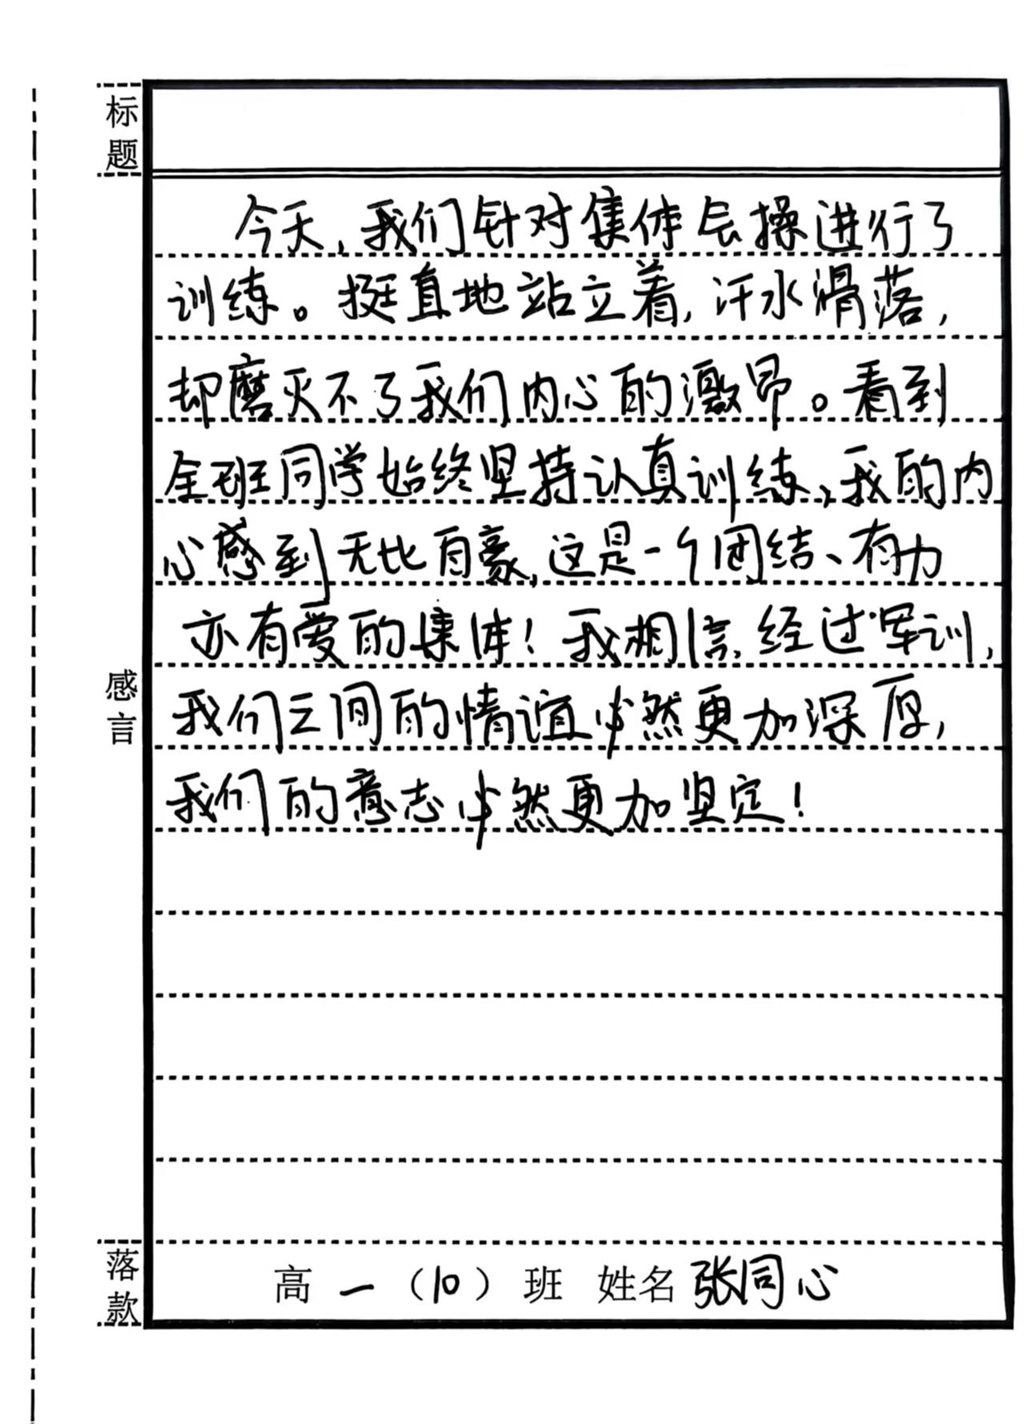 标题
今天，我们针对集体会操进行了
训练。挺直地站立着，汗水滑落，
却磨灭不了我们内心的激昂。看到
全班同学始终坚持认真训练，我的内
心感到无比自豪，这是一个团结、有力
亦有爱的集体！我相信，经过军训，
我们之间的情谊必然更加深厚，
我们的意志必然更加坚定！
感言
落款
高一（10）班 姓名 张同心